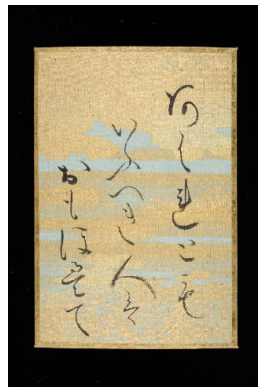 あはれとも
いふへき人は
おもほえて